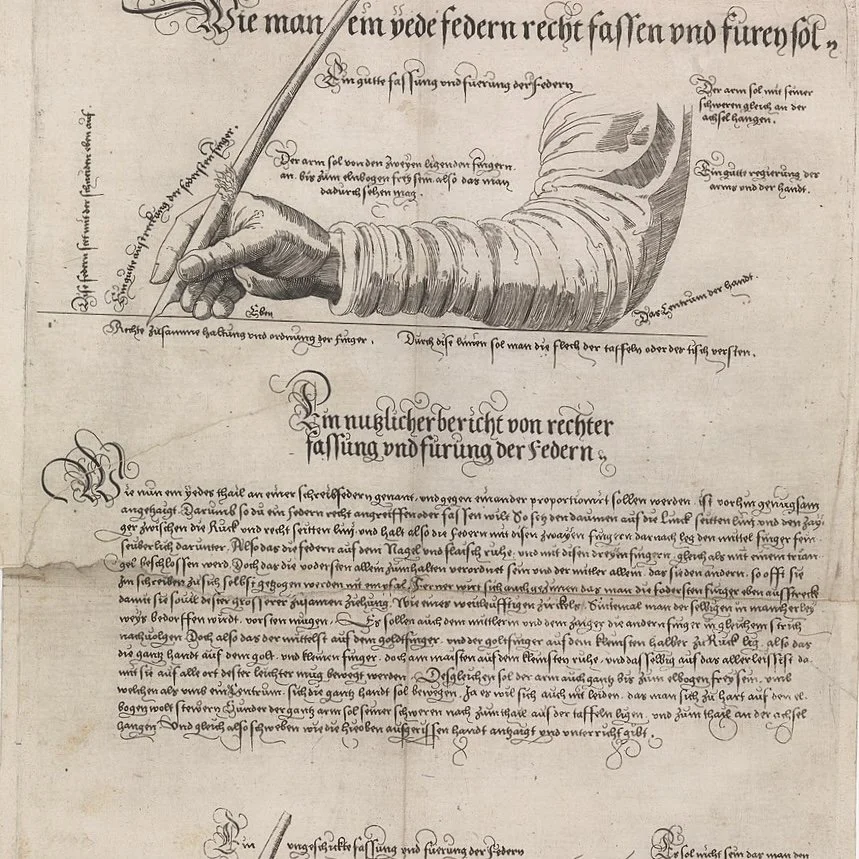 Wie man ein yede federn recht fassen vnd furen sol
Ein gutte fassung vnd fuerung der Federn
Der arm sol mit seiner
schweren gleich an der
achsel hangen.
Der arm sol von den zweyen ligenden fingern
an bis zum elnbogen frey sein also das man
dadurch sehen mag.
Ein gutte regierung des
arms vnd der handt.
Dise federn steet mit der schneiden eben auf.
Ein gutte ausstreckung der fodersten finger.
Eben
Das Centrum der handt.
Rechte zusamme haltung vnd ordnung der finger.
Durch dise linien sol man die flech der taffeln oder des tisch versten.
Ein nutzlicher bericht von rechter
fassung vnd furung der Federn
Wie nun ein yedes thail an einer schreibfedern genant, vnd gegen einander proportionirt sollen werden, ist vorhin genugsam
angezaigt. Darumb so du ein federn recht angreiffen oder fassen wilt So setz den daumen auf die Linck seitten und den zay
ger zwischen die Ruck vnd recht seitten und halt also die federn mit disen zwayen fingern darnach leg den mittel finger fein
seuberlich darunter. Also das die federn auf dem Nagel vnd flaisch ruhe, vnd mit disen dreyen fingern, gleich als mit einem trian
gel beschlossen werd Doch das die vodersten allein zumhalten verordnet sein vnd der mitler allein, das sie den andern, so offt sie
zm schreiben zu sich selbst gezogen werden mit Ferner wirt sich auch gezimen das man die fodersten finger eben ausstreck
damit sie souil dester grosserer zusamen ziehung. Wie eines weitleufftigen zirckels. Sintemal man der selbigen in mancherley
weys bedorffen wirdt, vorsten mugen. Es sollen auch dem mittlern vnd dem zaiger die andern finger in gleichem strich
nachuolgen Doch also das der mittelst auf dem goltfinger, vnd der goltfinger auf dem kleinsten halber zu Ruck lig, also das
die gantz handt auf dem golt, vnd kleinen finger, doch am maisten auf dem kleinsten ruhe, vnd dasselbig auf das aller leissist da
mit sie auf alle ort dester leichter mug bewegt werden. Desgleichen sol der arm auch gantz bis zum elbogen frey sein, vmb
welchen als vmb ein Zentrum, sich die gantz handt sol bewegen. Ja es wil sich auch nit leiden, das man sich zu hart auf den el
bogen wolt stewern Sunder der gantz arm sol seiner schweren nach zum thail auf der taffeln ligen, vnd zum thail an der achsel
hangen Vnd gleich also schweben wie die hieoben aufgerissen handt anzaigt vnd vnterricht gibt.
Ein vngeschickte fassung vnd fuerung der Federn
Es sol nicht sein das man den